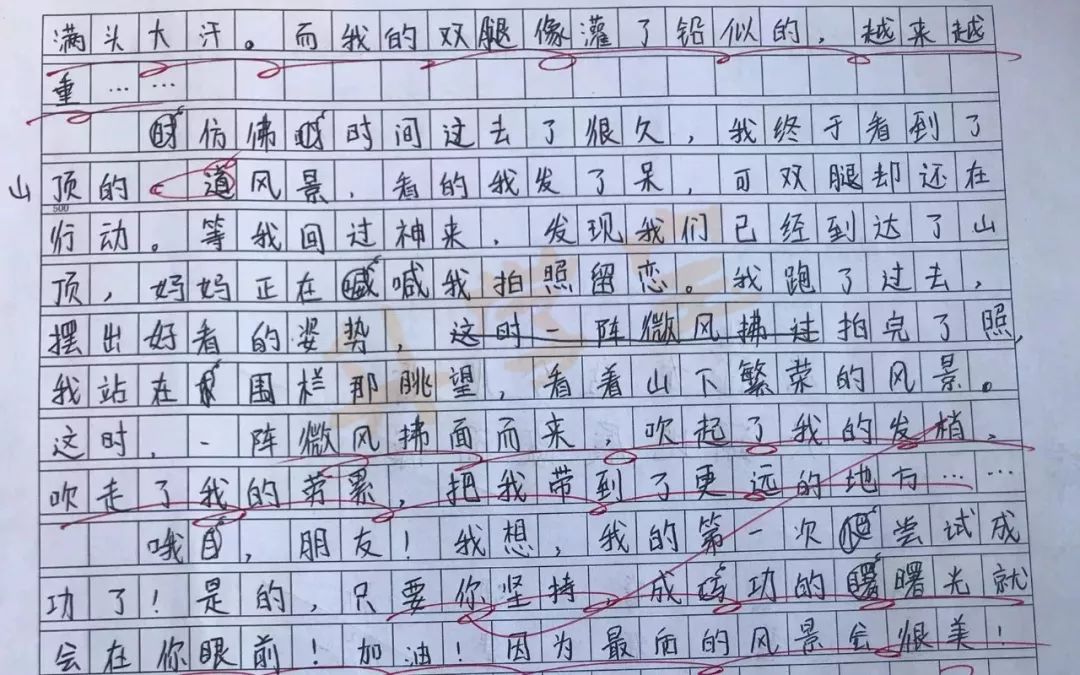 满头大汗。而我的双腿像灌了铅似的，越来越
重……
仿佛时间过去了很久，我终于看到了
山顶的道风景，看的我发了呆，可双腿却还在
500
行动。等我回过神来，发现我们已经到达了山
顶，妈妈正在喊我拍照留恋。我跑了过去，
摆出好看的姿势，这时一阵微风拂过拍完了照，
我站在围栏那眺望，看着山下繁荣的风景。
这时，一阵微风拂面而来，吹起了我的发梢、
吹走了我的劳累，把我带到了更远的地方……
哦，朋友！我想，我的第一次尝试成
功了！是的，只要你坚持，成功的曙光就
会在你眼前！加油！因为最后的风景会很美！